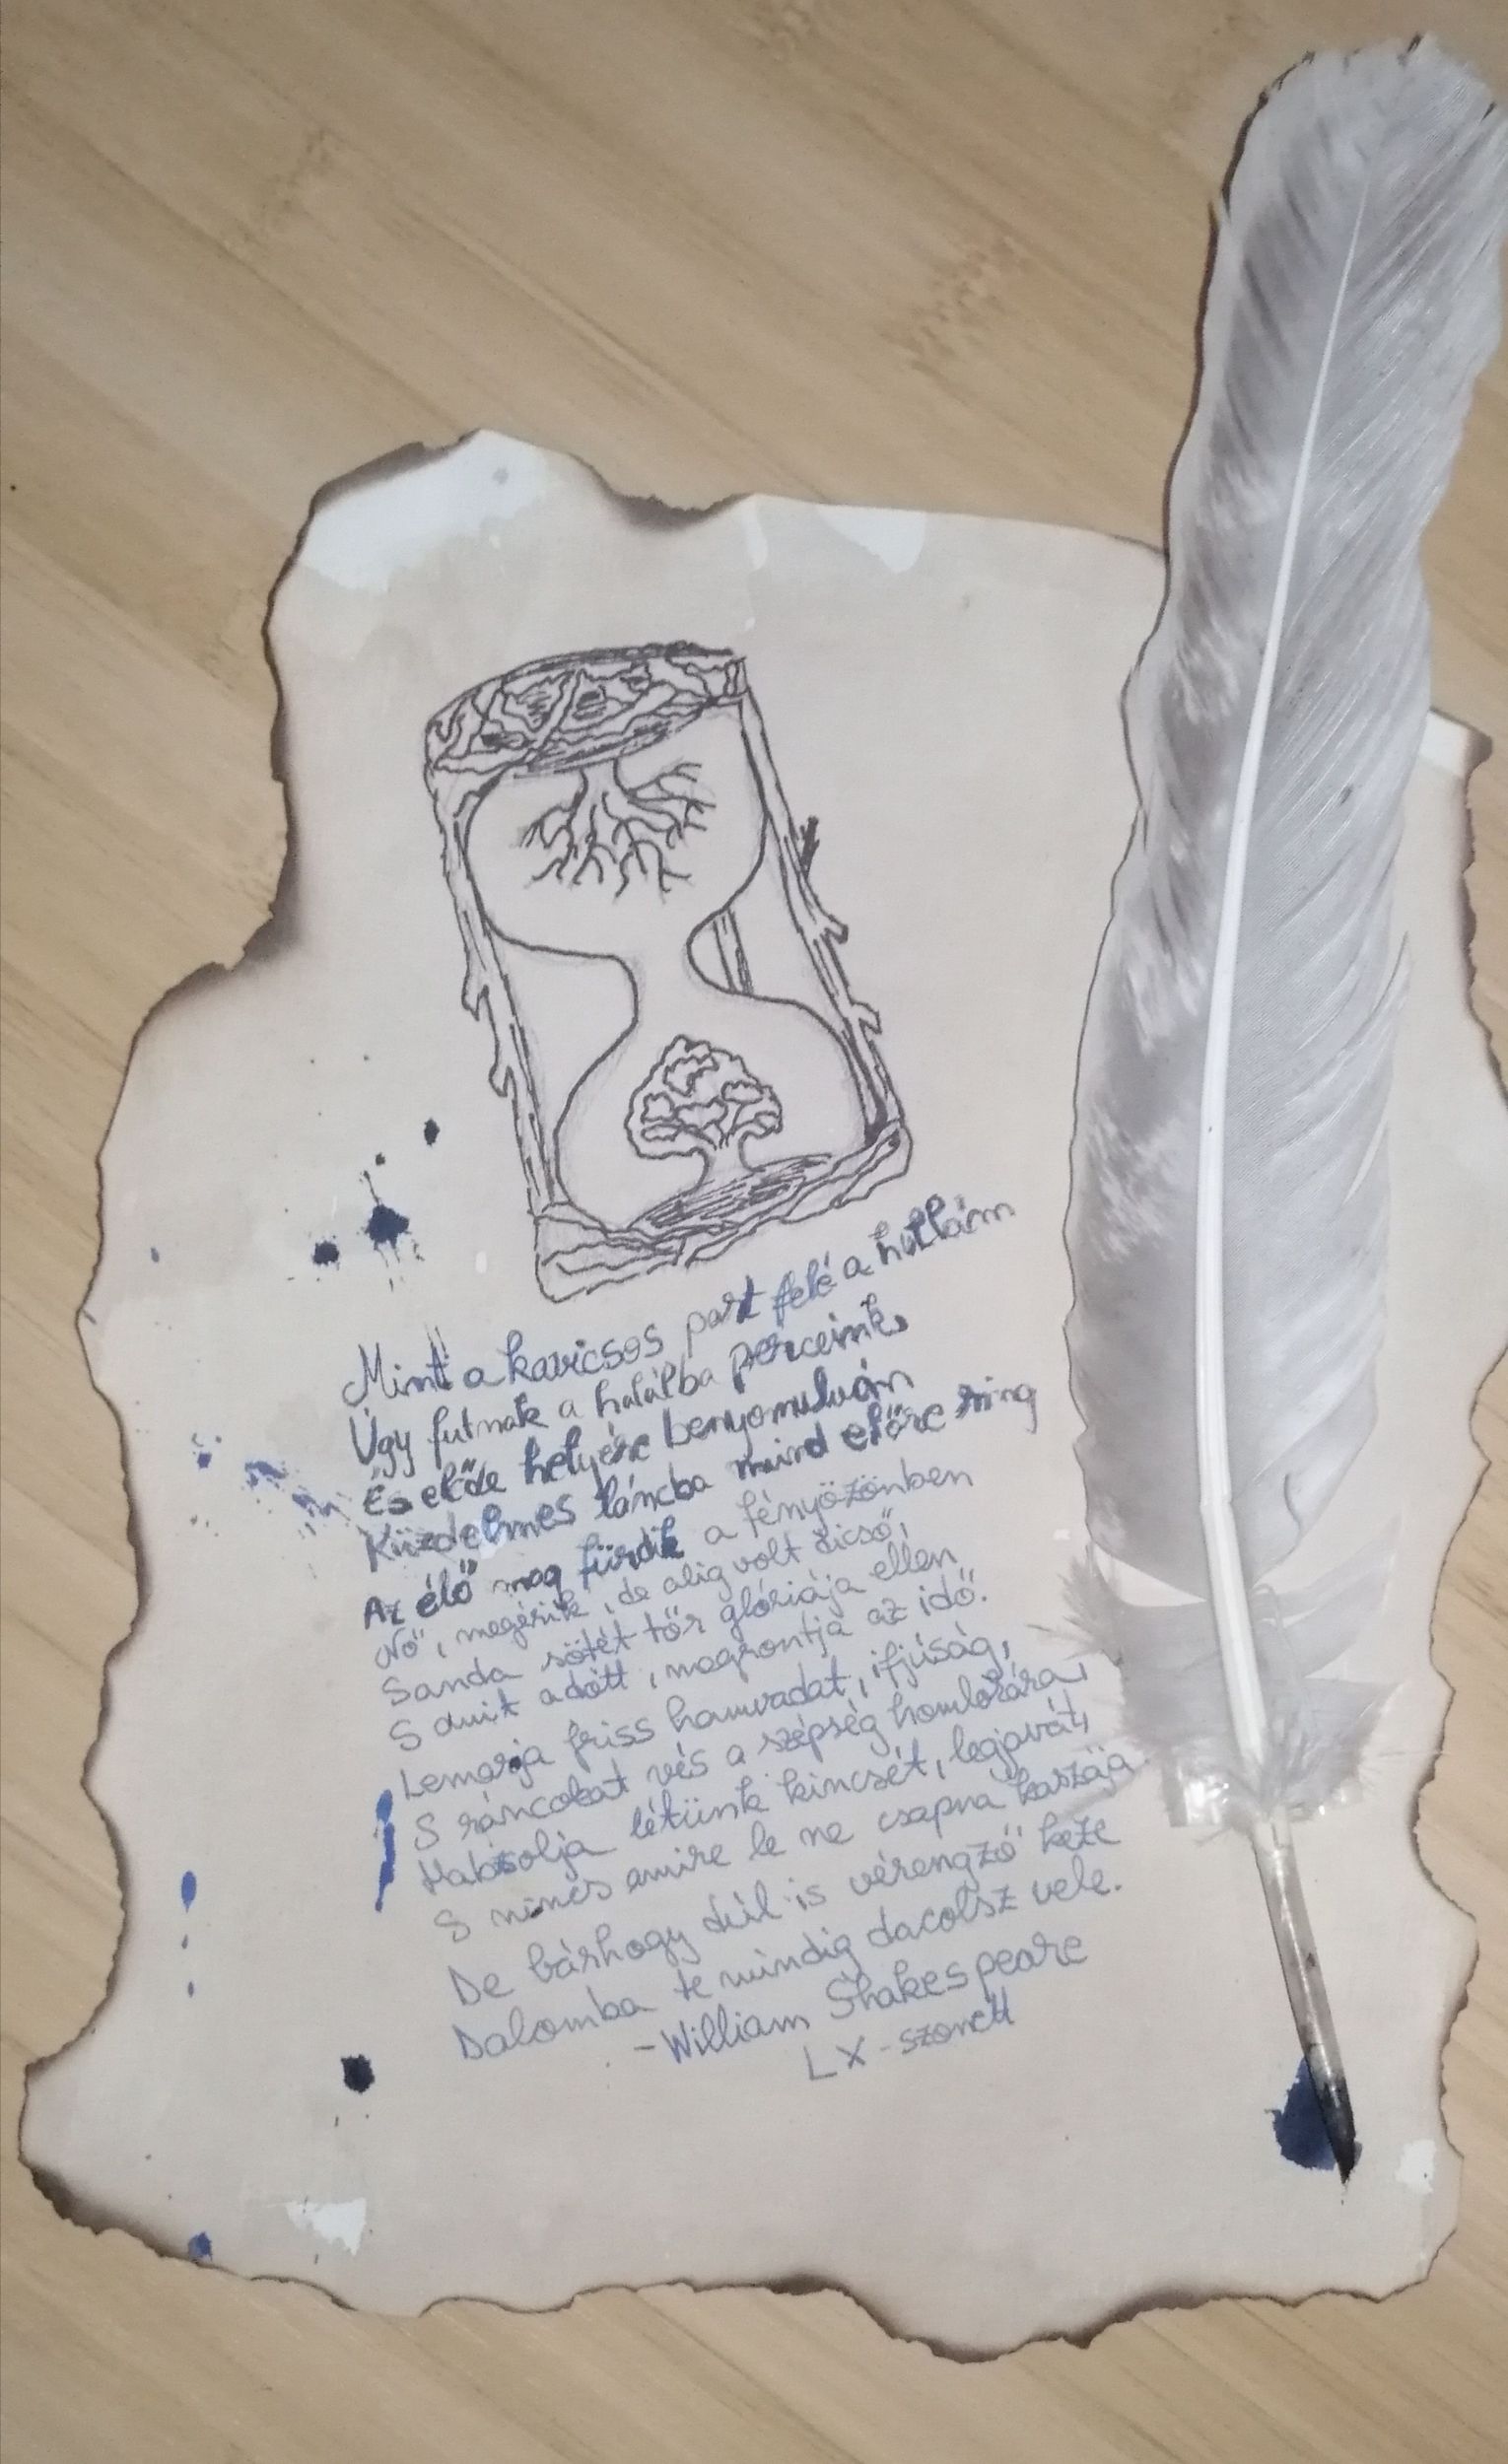 Mint a kavicsos part felé a hullám
Úgy futnak a halálba perceink,
És előde helyére benyomulván
Küzdelmes láncba mind előre ring
Az élő mag fürdik a fényözönben
Nő, megérik, de alig volt dicső,
Sanda sötét tőr glóriája ellen
S amit adott, megrontja az idő.
Lemarja friss hamvadat, ifjúság,
S ráncokat vés a szépség homlokára,
Habzsolja létünk kincsét, legjavát,
S nincs amire le ne csapna kaszája
De bárhogy dúl is vérengző keze
Dalomba te mindig dacolsz vele.
-William Shakespeare
LX-szonett